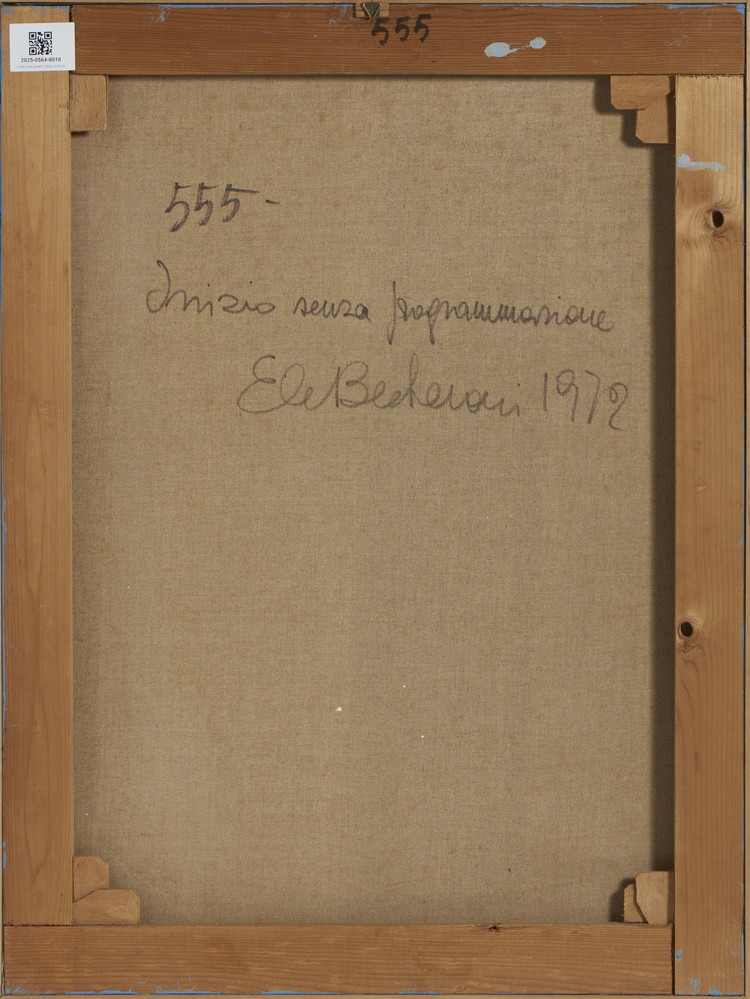 555
2025-0564-0010
555-
Inizio senza programmazione
Ele Becherari 1972